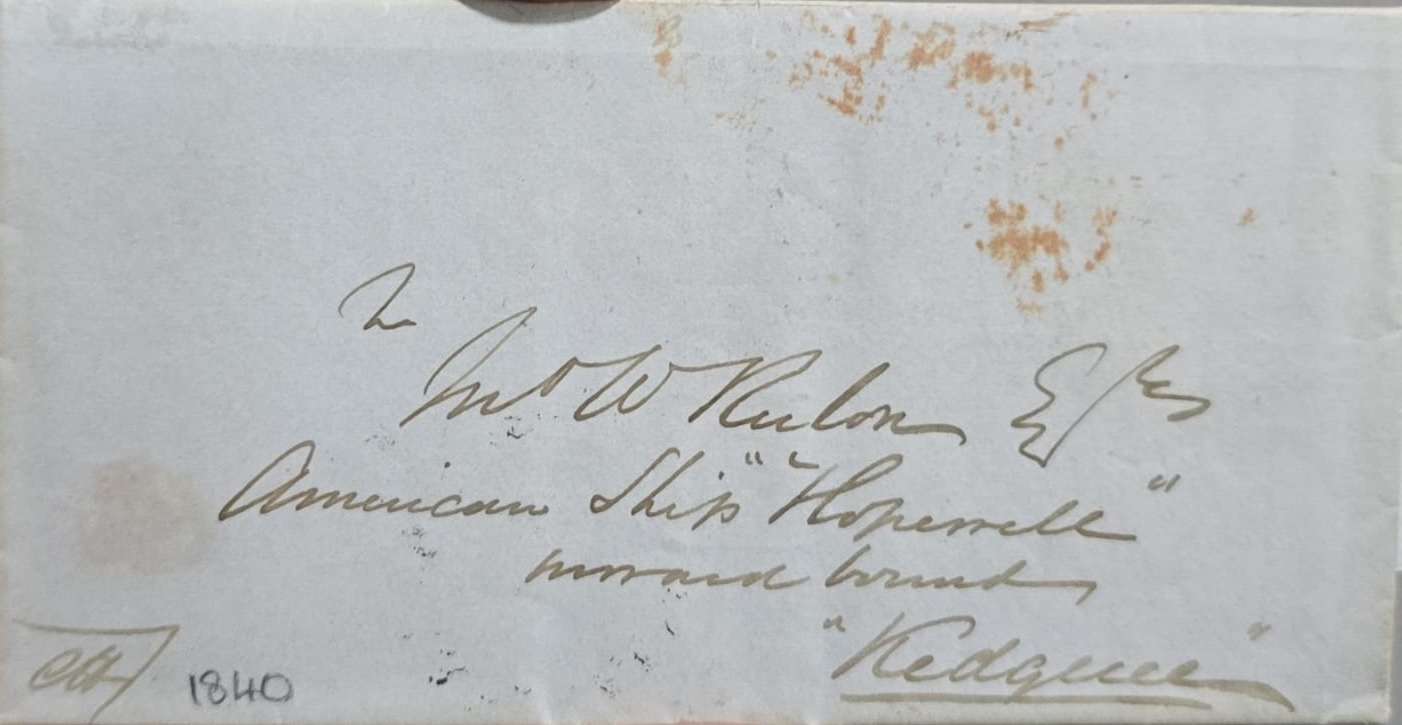 To
Jno W Rulon Esqre
American Ship "Hopewell"
inward bound
"Kedgeree"
1840